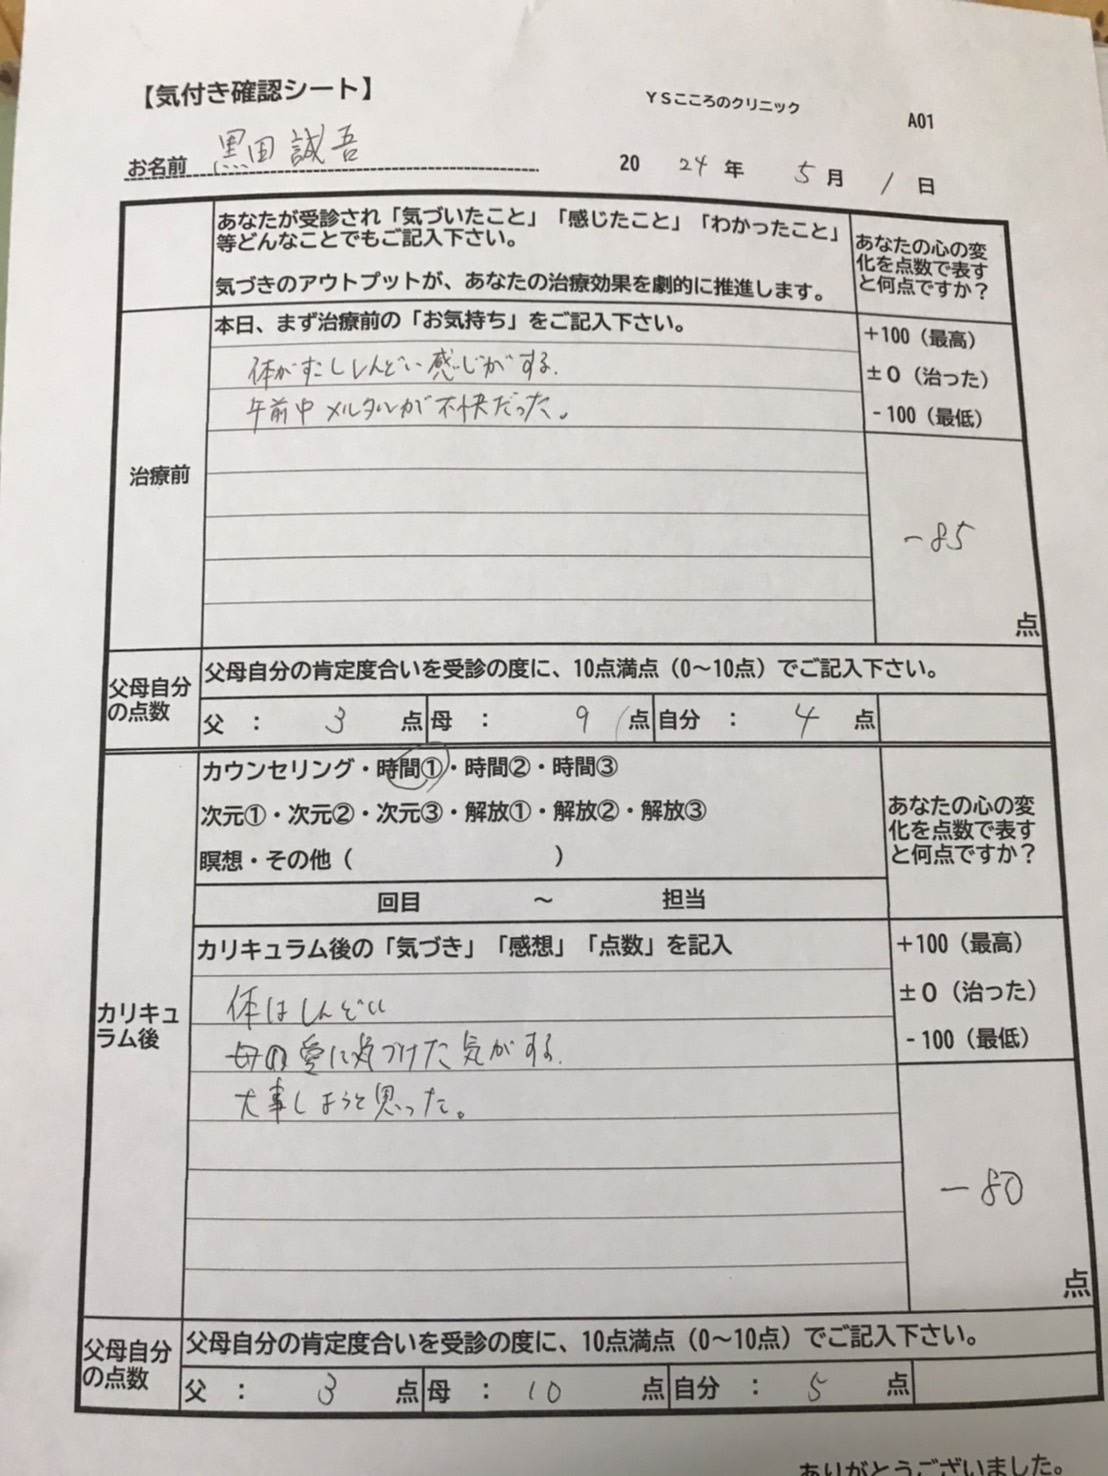 【気付き確認シート】
YSこころのクリニック
A01
お名前 黒田誠吾
2024年 5月 1日
あなたが受診され「気づいたこと」「感じたこと」「わかったこと」
等どんなことでもご記入下さい。
気づきのアウトプットが、あなたの治療効果を劇的に推進します。
あなたの心の変
化を点数で表す
と何点ですか？
治療前
本日、まず治療前の「お気持ち」をご記入下さい。
体がすこししんどい感じがする.
午前中メルタルが不快だった。
+100（最高）
±0（治った）
-100（最低）
-85
点
父母自分
の点数
父母自分の肯定度合いを受診の度に、10点満点（0～10点）でご記入下さい。
父 ： 3 点 母 ： 9 点 自分 ： 4 点
カウンセリング・時間①・時間②・時間③
次元①・次元②・次元③・解放①・解放②・解放③
瞑想・その他（ ）
回目 ～ 担当
あなたの心の変
化を点数で表す
と何点ですか？
カリキュ
ラム後
カリキュラム後の「気づき」「感想」「点数」を記入
体はしんどい
母の愛に気づけた気がする.
大事しようと思った。
+100（最高）
±0（治った）
-100（最低）
-80
点
父母自分
の点数
父母自分の肯定度合いを受診の度に、10点満点（0～10点）でご記入下さい。
父 ： 3 点 母 ： 10 点 自分 ： 5 点
ありがとうございました。